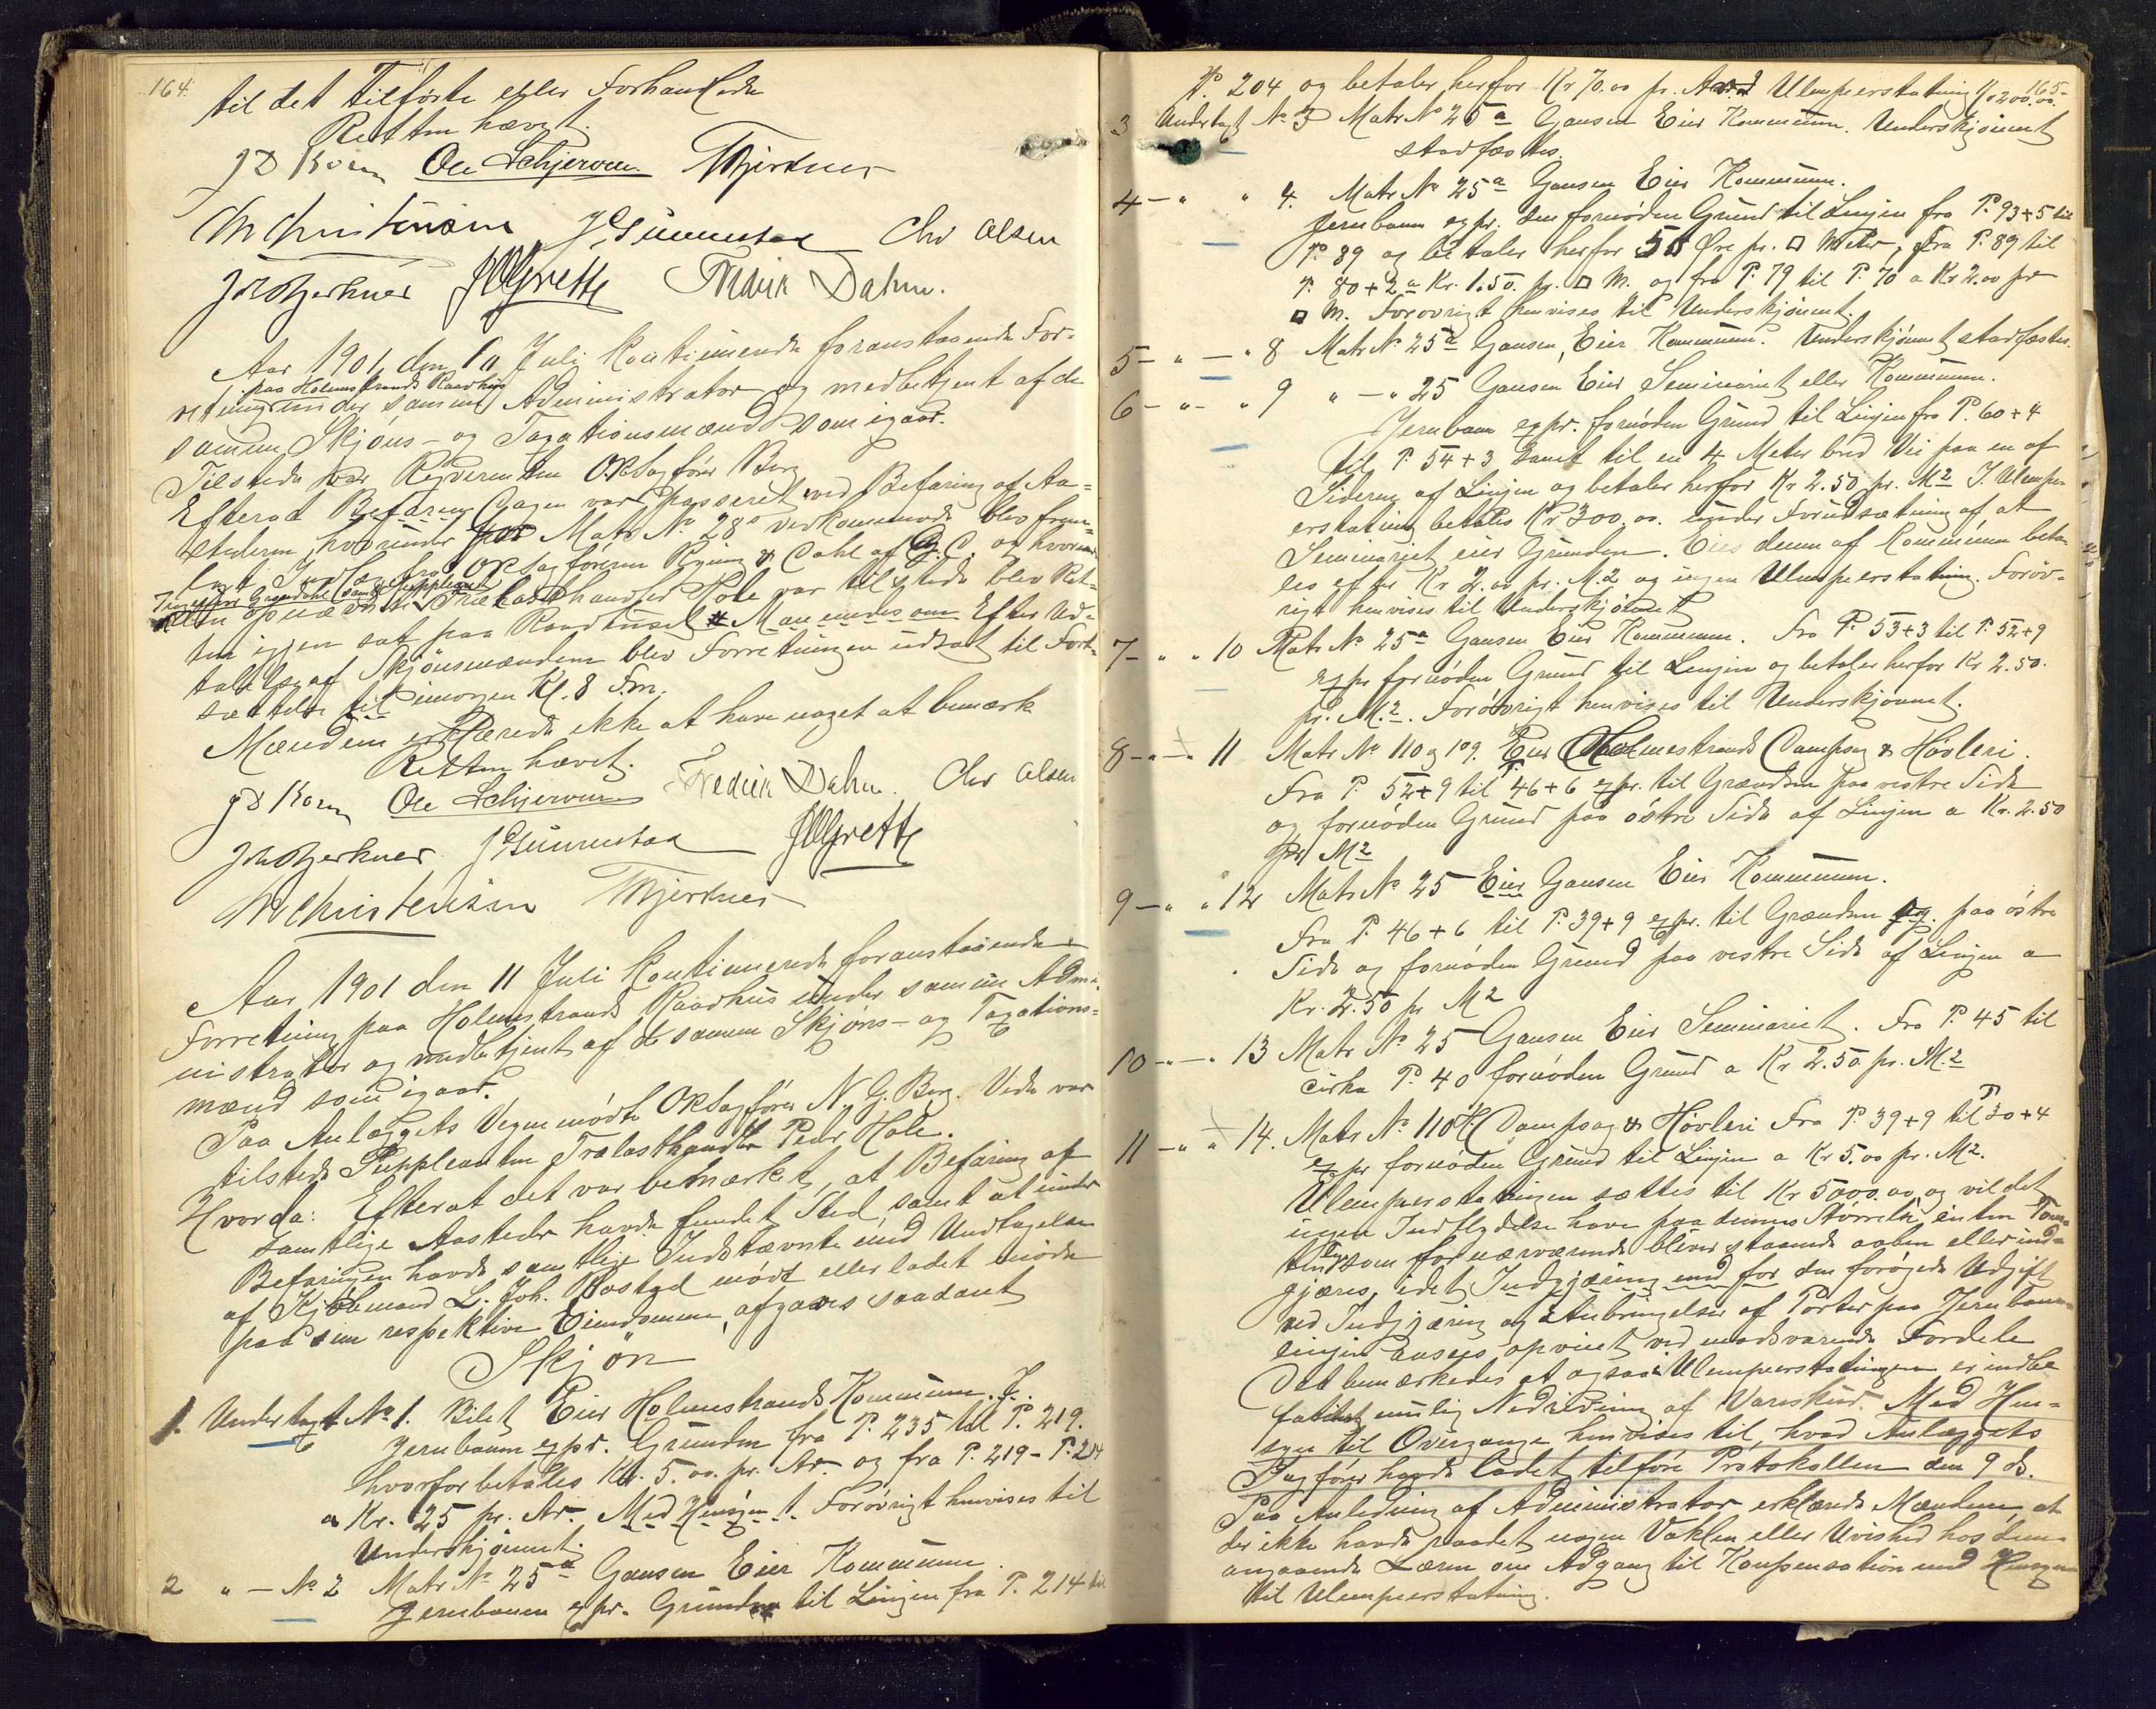 164
til det Tilførte eller Forhandlede
Retten hævet.
J D Korn Ole Schjerven TBjerknes
M Christensen J Gunnestad Chr Olsen
Joh Bjerknes J Grette Fredrik Dahm.
Aar 1901 den 10 Juli kontinuerede foranstaaende For-
paa Holmestrands Raadhus
retning under samme Administrator og medbetjent af de
samme Skjøns- og Taxationsmænd som igaar.
Tilstede var Rekvirenten ORSagfører Borg
Efterat Befaring var passeret ved Befaring af Aa-
stederne, hvorunder Matr No 28 vedkommende blev frem-
lagt Indlæg fra ORSagførerne Ryning & Dahl af og hvorunder
Ingeniør Grøndahl samt Suppleant
Trælasthandler Hole var tilstede blev Ret-
ten igjen sat paa Raadhuset Man enedes om Efter Ud-
talelse af Skjønsmændene blev Forretningen udsat til Fort-
sættelse til imorgen Kl. 8 Fm.
Mændene erklærede ikke at have noget at bemærke
Retten hævet.
J D Korn Ole Schjerven Fredrik Dahm. Chr Olsen
Joh Bjerknes J Gunnestad J Grette
M Christensen TBjerknes
Aar 1901 den 11 Juli kontinuerede foranstaaende
Forretning paa Holmestrands Raadhus under samme Admi-
nistrator og medbetjent af de samme Skjøns- og Taxations-
mænd som igaar.
Paa Anlæggets Vegne mødte ORSagfører N. G. Borg. Videre var
tilstede Suppleanten Trælasthandler Peder Hole.
Hvorda: Efterat det var bemærket, at Befaring af
samtlige Aasteder havde fundet Sted, samt at under
Befaringen havde samtlige Indstævnte med Undtagelse
af Kjøbmand L. Joh. Rostad mødt eller ladet møde
paa sine respektive Eiendomme, afgaves saadant
Skjøn
1. Undertagt No 1. Bilet Eier Holmestrands Kommune.
Jernbanen expr. Grunden fra P. 235 til P. 219.
hvorfor betales Kr. 5.00. pr. Ar og fra P. 219 - P. 214
a Kr. 25 pr. Ar. Med Hensyn t. Forøvrigt henvises til
Underskjønnet.
2 " - No 2 Matr No 25a Gausen Eier Kommunen.
Jernbanen expr. Grunden til Linjen fra P. 214 til
165
P. 204 og betaler herfor Kr 70.00 pr. Ar Ulempeerstatning Kr 200.00.
3 Undertagt No 3 Matr No 25a Gausen Eier Kommunen. Underskjønnet
stadfæstes.
4 - " " 4. Matr No 25a Gausen Eier Kommunen.
Jernbanen expr. den fornøden Grund til Linjen fra P. 93+5 til
P. 89 og betaler herfor 50 Øre pr. □ Meter, fra P. 89 til
P. 80+2 a Kr. 1.50. pr. □ M. og fra P. 79 til P. 70 a Kr 2.00 pr
□ M. Forøvrigt henvises til Underskjønnet.
5 - " - " 8 Matr No 25a Gausen, Eier Kommunen. Underskjønnet stadfæstes.
6 - " - " 9 " - " 25 Gausen Eier Seminariet eller Kommunen.
Jernbanen expr. fornøden Grund til Linjen fra P. 60+4
til P. 54+3 samt til en 4 Meter bred Vei paa en af
Siderne af Linjen og betaler herfor Kr 2.50 pr. M2 I Ulempe-
erstatning betales Kr 300.00. under Forudsætning af at
Seminariet eier Grunden. Eies denne af Kommunen beta-
les efter Kr 2.00 pr. M.2 og ingen Ulempeerstatning. Forøv-
rigt henvises til Underskjønnet
7 - " " 10 Matr No 25a Gausen Eier Kommunen. Fra P. 53+3 til P. 52+9
expr fornøden Grund til Linjen og betaler herfor Kr 2.50.
pr. M.2. Forøvrigt henvises til Underskjønnet.
8 - " - " 11 Matr No 110 og 109. Eier Holmestrands Dampsag & Høvleri.
Fra P. 52+9 til P. 46+6 expr. til Grændsen paa vestre Side
og fornøden Grund paa østre Side af Linjen a Kr. 2.50
pr M2
9 - " " 12 Matr No 25 Eier Gausen Eier Kommunen.
Fra P. 46+6 til P. 39+9 expr. til Grændsen paa østre
Side og fornøden Grund paa vestre Side af Linjen a
Kr. 2.50 pr M2
10 - " - " 13 Matr No 25 Gausen Eier Seminariet. Fra P. 45 til
cirka P. 40 fornøden Grund a Kr 2.50 pr. M.2
11 - " " 14. Matr No 110 H. Dampsag & Høvleri Fra P. 39+9 til P 30+4
expr fornøden Grund til Linjen a Kr 5.00 pr. M2.
Ulempeerstatningen sættes til Kr 5000.00, og vil det
ingen Indflydelse have paa dennes Størrelse enten Tom-
ten som for nærværende bliver staaende aaben eller ind-
gjæres, idet Indgjæring med for den forøgede Udgift
ved Indgjæring og Anbringelse af Porter paa Jernbane-
linjen ansees opveiet ved modsvarende Fordele
Det bemærkedes at ogsaa i Ulempeerstatningen er indbe-
fattet mulig Nedridning af Vareskur. Med Hen-
syn til Overgange henvises til, hvad Anlæggets
Sagfører havde ladet tilføre Protokollen den 9 ds.
Paa Anledning af Administrator erklærede Mændene, at
der ikke havde raadet nogen Vaklen eller Uvished hos dem
angaaende Læren om Adgang til Kompensation med Hensyn
til Ulempeerstatning.